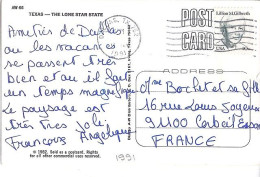 JW-64
TEXAS — THE LONE STAR STATE
POST
CARD
USA
Amitiés de Dallas
ou les vacances
se passent très
bien et où il fait
un temps magnifique
Le paysage est
très très joli.
Françoise Angélique
ADDRESS
Mme Bochet et sa fille
16 rue Louis
91100 Corbeil Essonnes
FRANCE
© 1982. Sold as a postcard. Rights
for all other commercial uses reserved.
1991